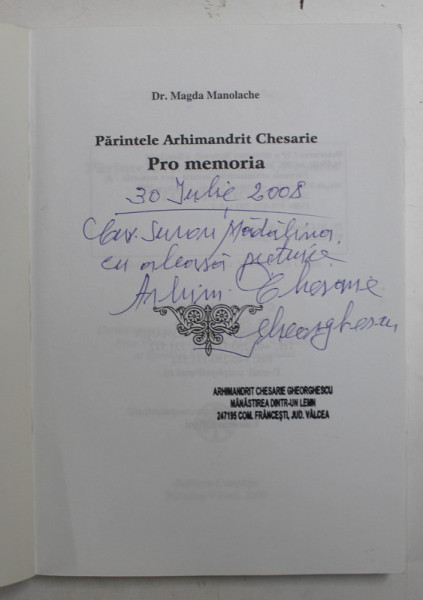 Dr. Magda Manolache
Părintele Arhimandrit Chesarie
Pro memoria
30 Iulie 2008
Mădălina,
cu aleasă prețuire
Arhim. Chesarie
Gheorghescu
ARHIMANDRIT CHESARIE GHEORGHESCU
MĂNĂSTIREA DINTR-UN LEMN
247195 COM. FRÂNCEȘTI, JUD. VÂLCEA